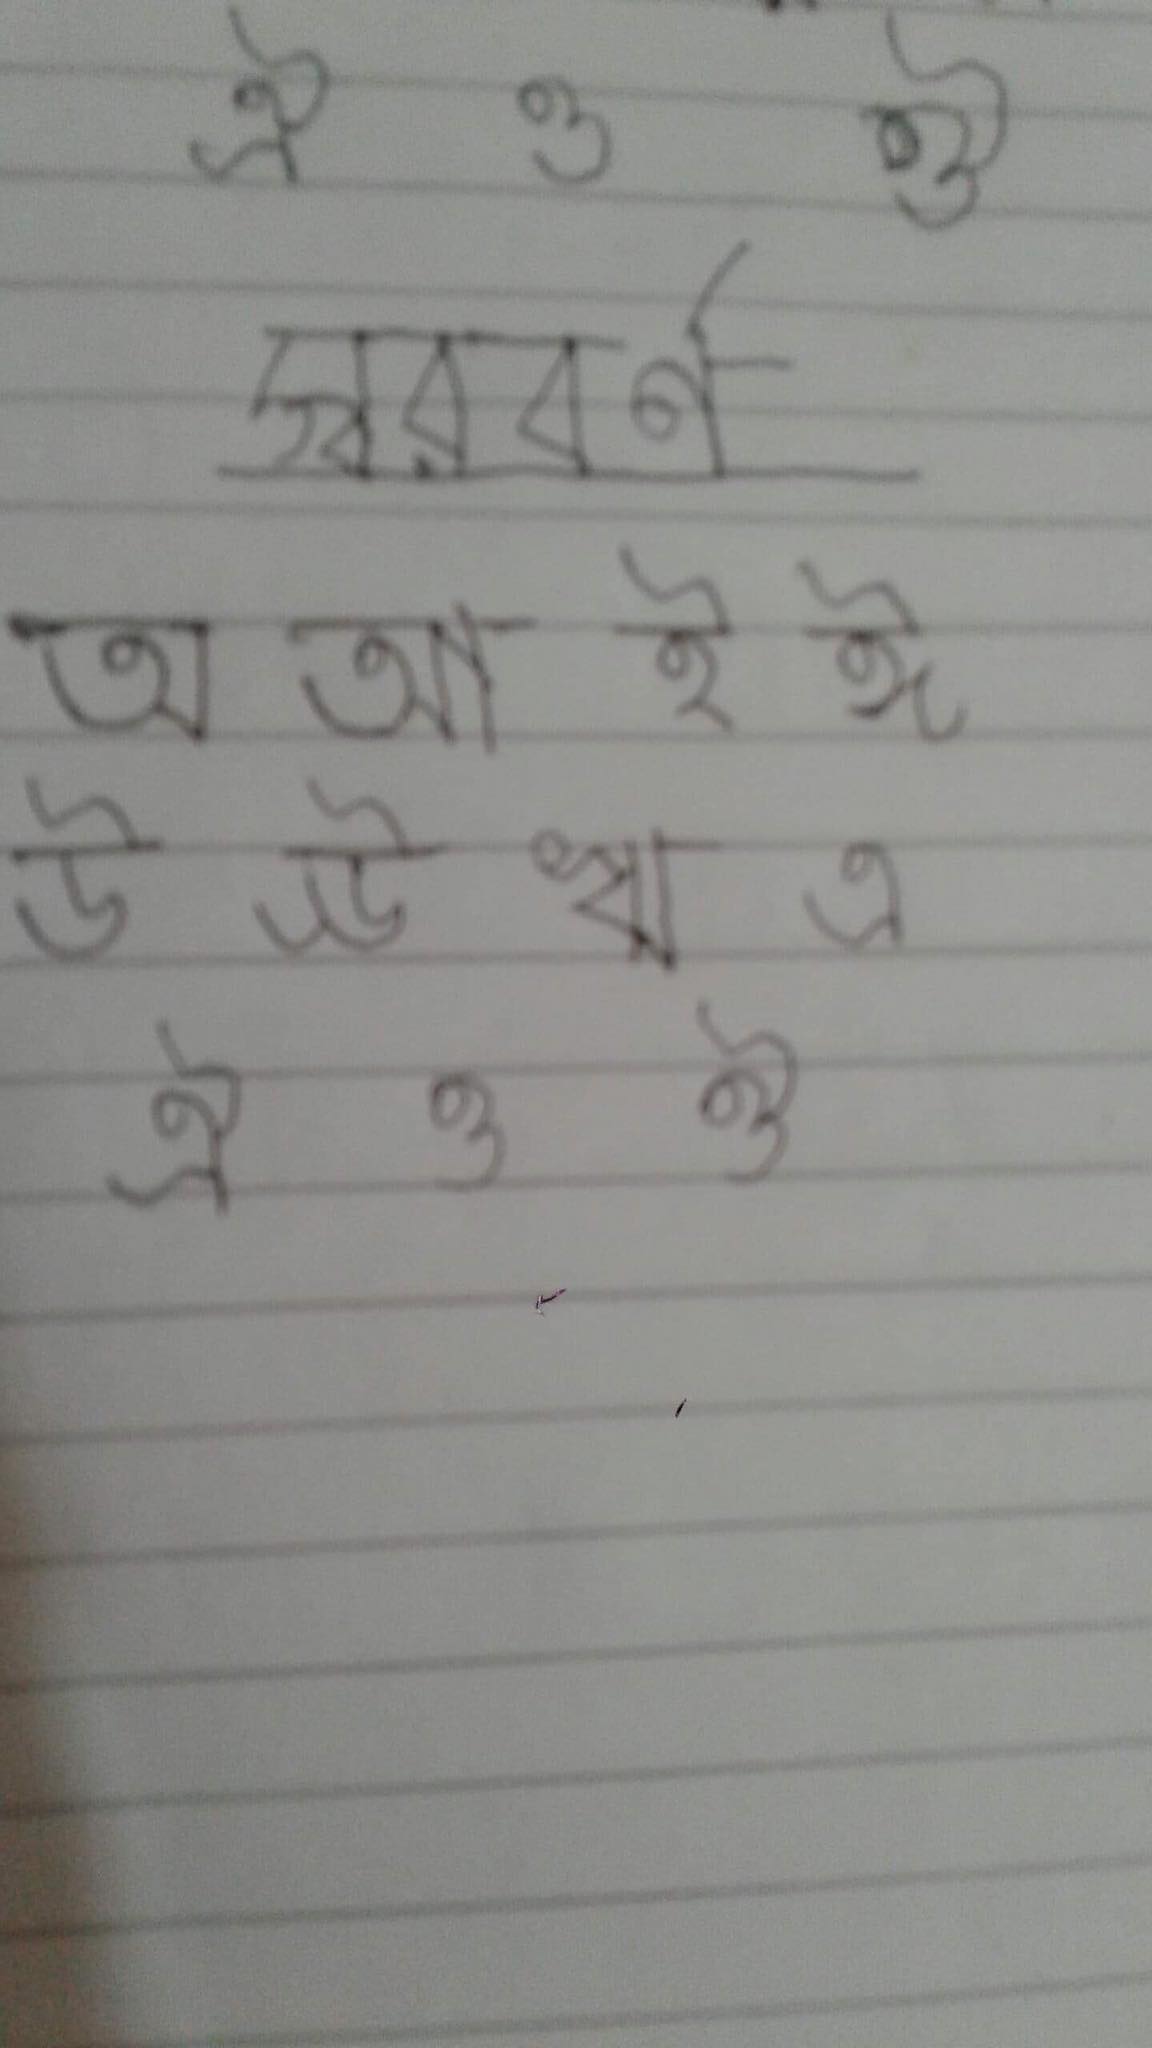 ঐ ও ঔ
স্বরবর্ণ
অ আ ই ঈ
উ ঊ ঋ এ
ঐ ও ঔ